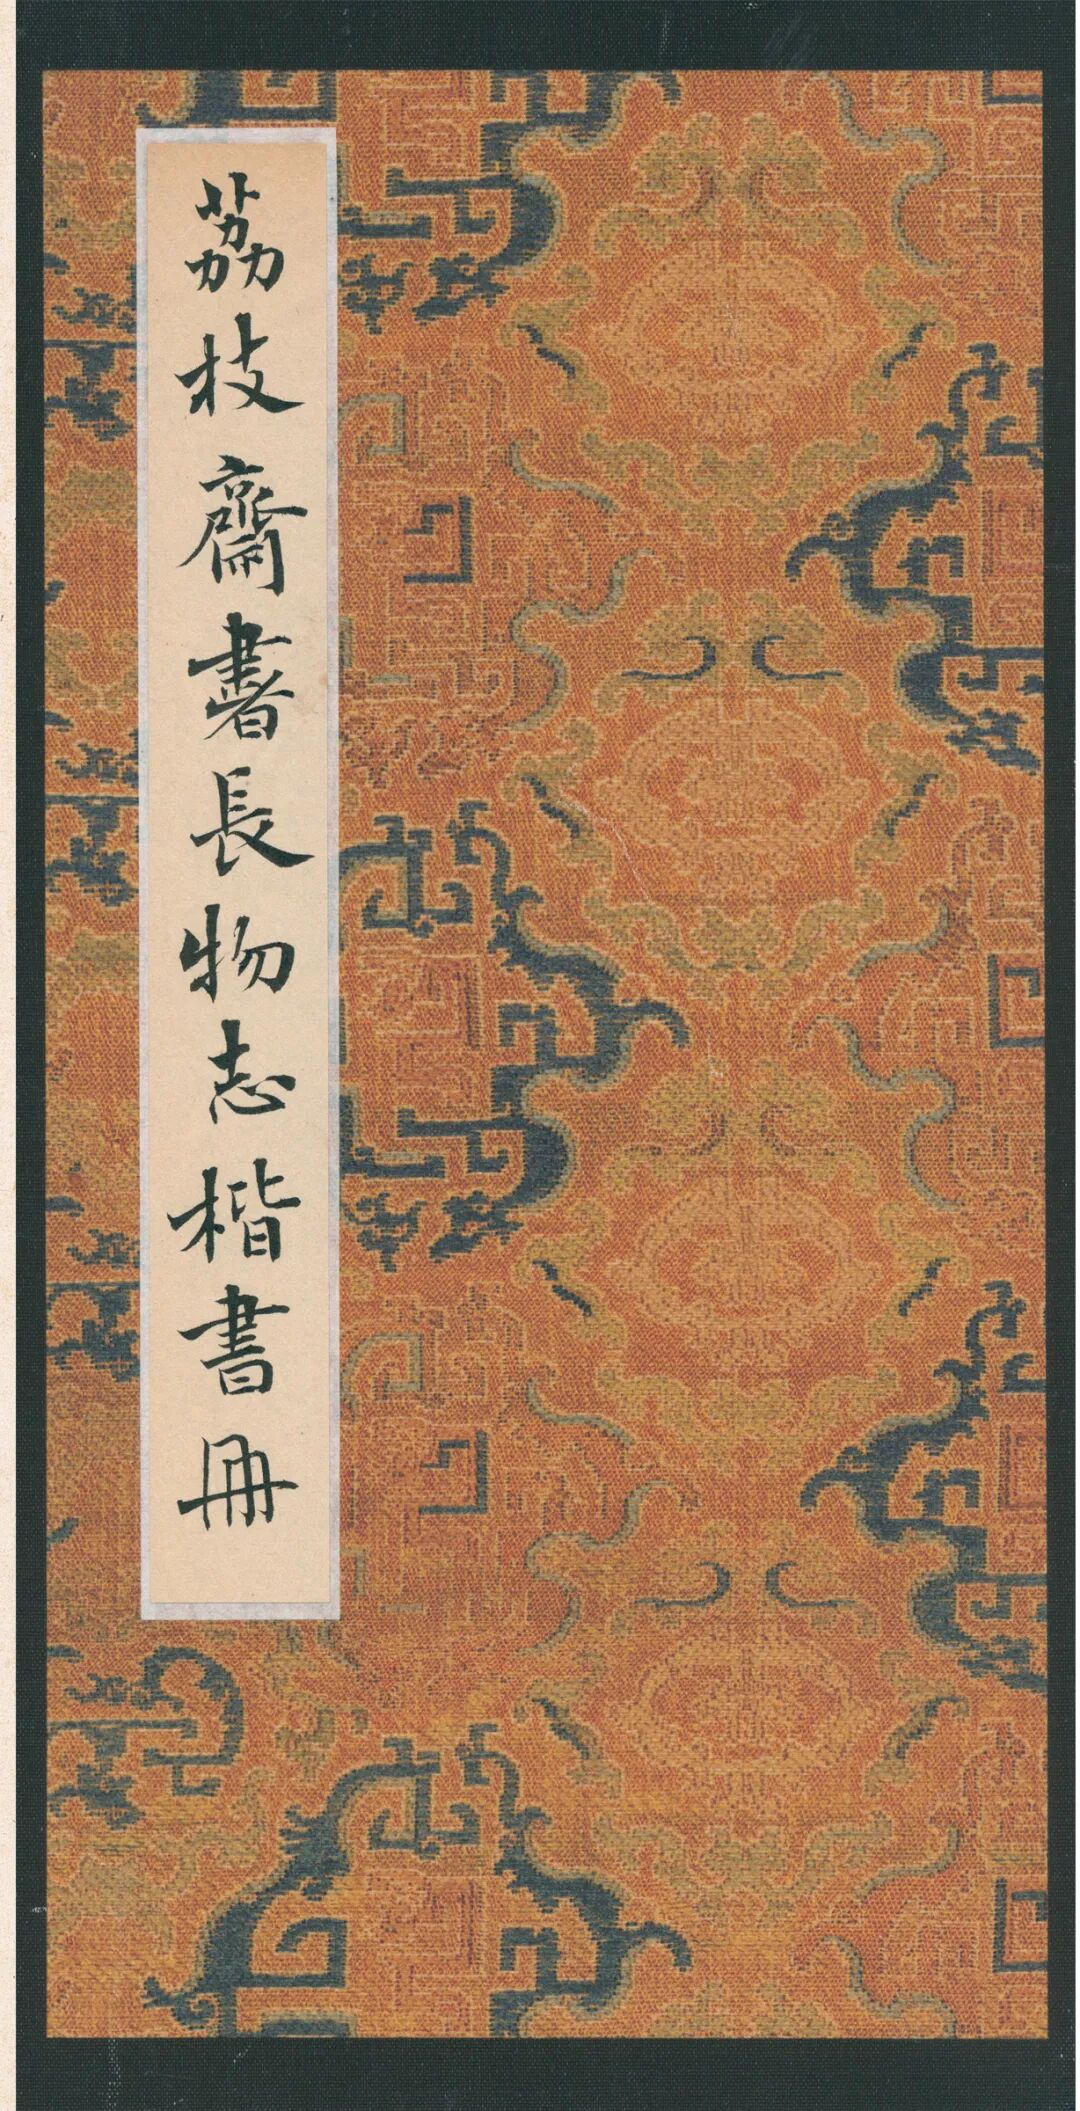 荔枝齋書長物志楷書冊